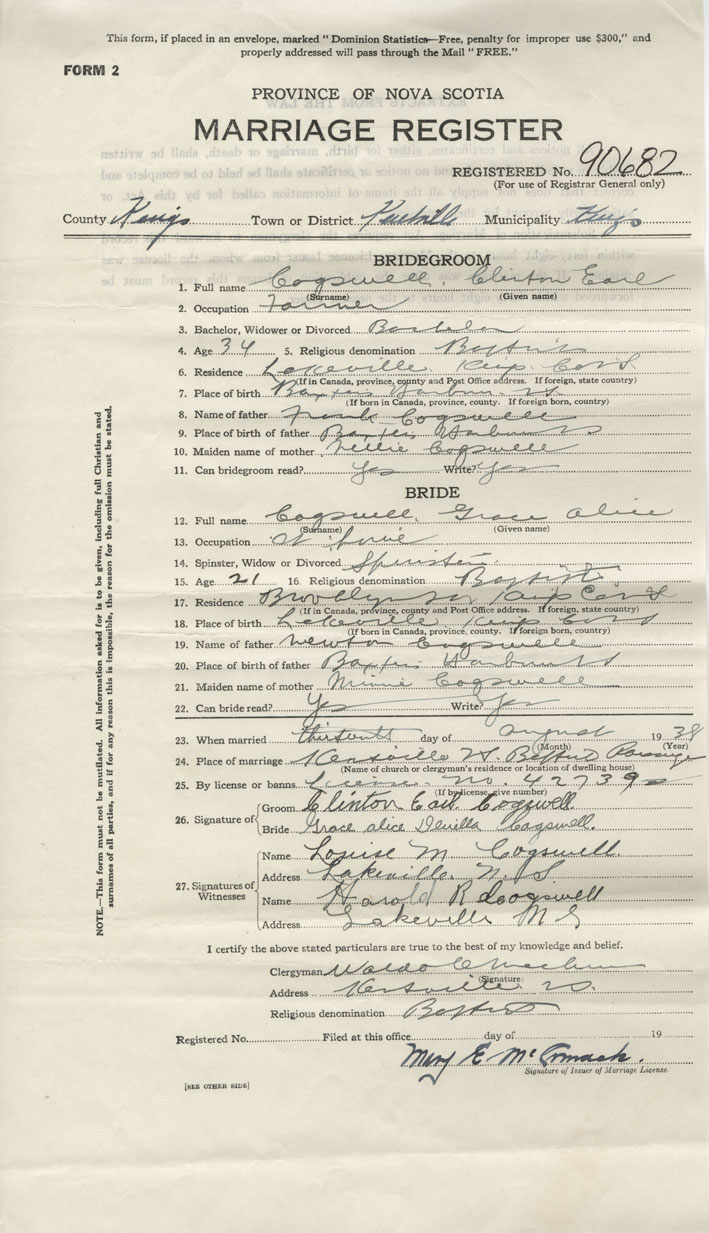 This form, if placed in an envelope, marked "Dominion Statistics—Free, penalty for improper use $300," and
properly addressed will pass through the Mail "FREE."
FORM 2
PROVINCE OF NOVA SCOTIA
MARRIAGE REGISTER
REGISTERED No. 90682
(For use of Registrar General only)
County Kings Town or District Kentville Municipality Kings
BRIDEGROOM
1. Full name Cogswell, Clinton Earl
(Surname) (Given name)
2. Occupation Farmer
3. Bachelor, Widower or Divorced Bachelor
4. Age 34 5. Religious denomination Baptist
6. Residence Lakeville Kings Co N.S.
(If in Canada, province, county and Post Office address. If foreign, state country)
7. Place of birth Baxters Harbour N.S.
(If born in Canada, province, county. If foreign born, country)
8. Name of father Frank Cogswell
9. Place of birth of father Baxters Harbour N S
10. Maiden name of mother Nellie Cogswell
11. Can bridegroom read? Yes Write? Yes
BRIDE
12. Full name Cogswell, Grace Alice
(Surname) (Given name)
13. Occupation At home
14. Spinster, Widow or Divorced Spinster
15. Age 21 16. Religious denomination Baptist
17. Residence Kings Co N S
(If in Canada, province, county and Post Office address. If foreign, state country)
18. Place of birth Lakeville Kings Co N S
(If born in Canada, province, county. If foreign born, country)
19. Name of father Newton Cogswell
20. Place of birth of father Baxters Harbour N S
21. Maiden name of mother Minnie Cogswell
22. Can bride read? Yes Write? Yes
23. When married thirteenth day of August 1938
(Month) (Year)
24. Place of marriage Kentville N.S. Baptist Parsonage
(Name of church or clergyman's residence or location of dwelling house)
25. By license or banns License No. 42739
(If by license, give number)
26. Signature of
Groom Clinton Earl Cogswell.
Bride Grace Alice Cogswell.
27. Signatures of Witnesses
Name Louise M. Cogswell.
Address Lakeville. N.S
Name Harold R Cogswell
Address Lakeville N S
I certify the above stated particulars are true to the best of my knowledge and belief.
Clergyman Waldo C Machum
(Signature)
Address Kentville N.S.
Religious denomination Baptist
Registered No. Filed at this office day of 19
Mary E McCormack.
Signature of Issuer of Marriage License.
[SEE OTHER SIDE]
NOTE.—This form must not be mutilated. All information asked for is to be given, including full Christian and
surnames of all parties, and if for any reason this is impossible, the reason for the omission must be stated.